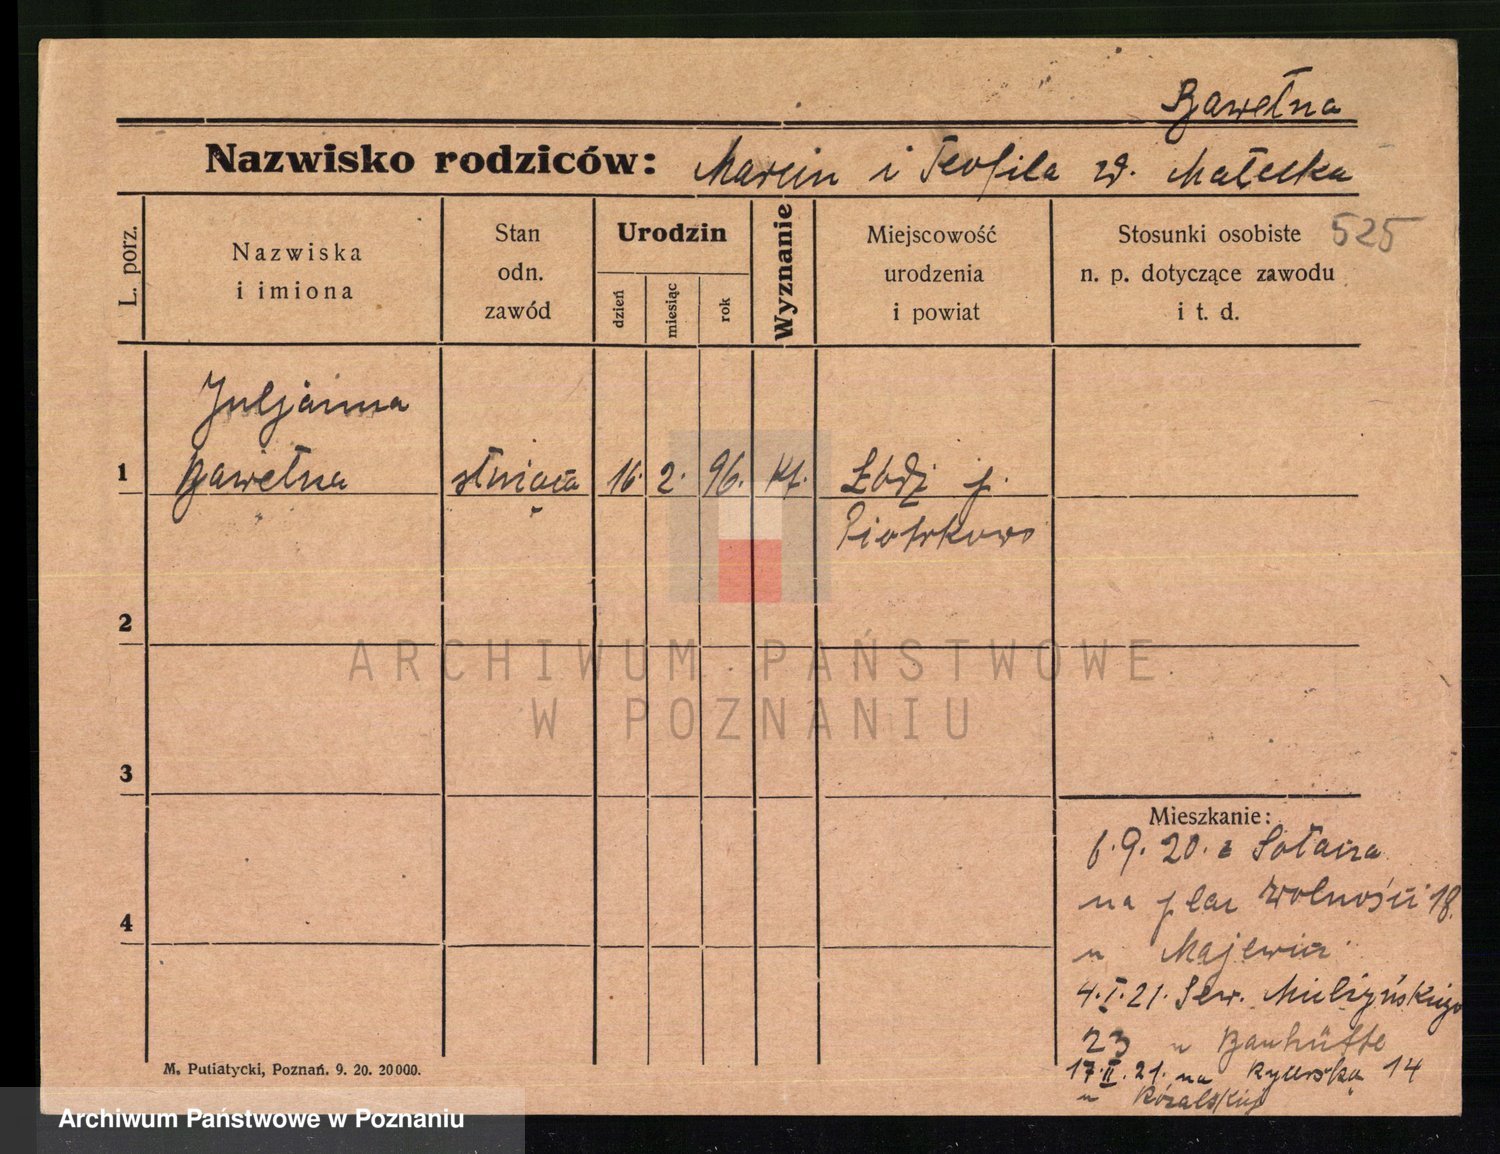 Bawełna
Nazwisko rodziców: Marcin i Teofila zd. Małecka
525
L. porz.
Nazwiska
i imiona
Stan
odn.
zawód
Urodzin
dzień
miesiąc
rok
Wyznanie
Miejscowość
urodzenia
i powiat
Stosunki osobiste
n. p. dotyczące zawodu
i t. d.
Juljanna
1 Bawełna służąca 16. 2. 96. kt. Łódź p.
Piotrkowo
2
3
4
ARCHIWUM PAŃSTWOWE
W POZNANIU
Mieszkanie:
6.9.20. z Sołacza
na plac Wolności 18.
u
4.I.21. Sew. Mielżyńskiego
23 u Bauhütte
17.II.21. na Rycerską 14
u
M. Putiatycki, Poznań. 9. 20. 20000.
Archiwum Państwowe w Poznaniu